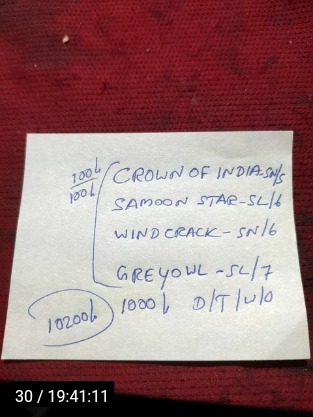 100/- CROWN OF INDIA-SN/5
100/- SAMOON STAR-SL/6
WINDCRACK-SN/6
GREYOWL-SL/7
10200/- 1000/- D/T/U/O
30 / 19:41:11